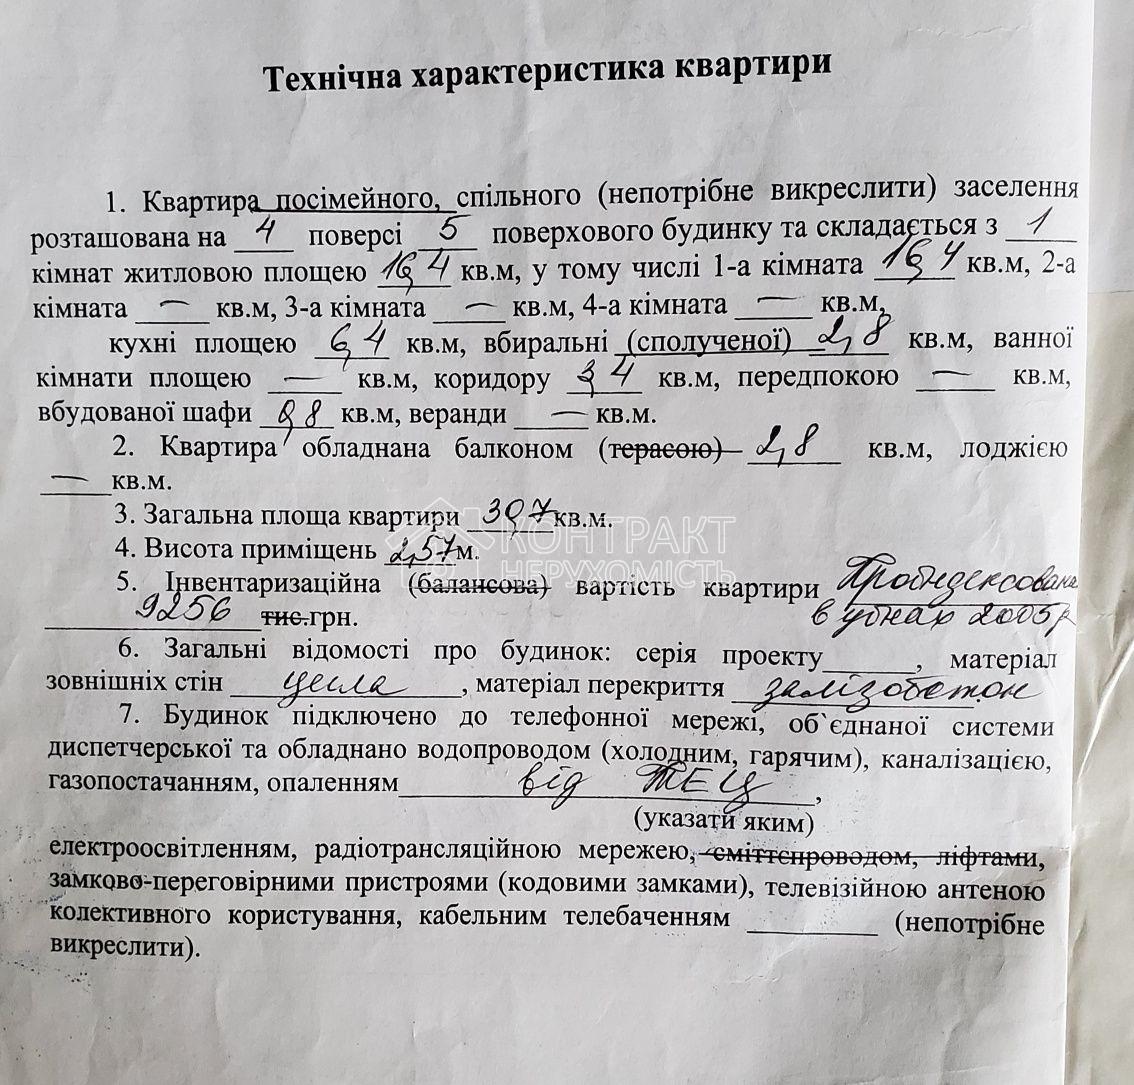 Технічна характеристика квартири
1. Квартира посімейного, спільного (непотрібне викреслити) заселення
розташована на 4 поверсі 5 поверхового будинку та складається з 1
кімнат житловою площею 16,4 кв.м, у тому числі 1-а кімната 16,4 кв.м, 2-а
кімната — кв.м, 3-а кімната — кв.м, 4-а кімната — кв.м,
кухні площею 6,4 кв.м, вбиральні (сполученої) 2,8 кв.м, ванної
кімнати площею — кв.м, коридору 3,4 кв.м, передпокою — кв.м,
вбудованої шафи 0,8 кв.м, веранди — кв.м.
2. Квартира обладнана балконом (терасою) 2,8 кв.м, лоджією
— кв.м.
3. Загальна площа квартири 30,7 кв.м.
4. Висота приміщень 2,57 м.
5. Інвентаризаційна (балансова) вартість квартири Проіндексована
9256 тис.грн. в цінах 2005р
6. Загальні відомості про будинок: серія проекту______, матеріал
зовнішніх стін цегла, матеріал перекриття залізобетон
7. Будинок підключено до телефонної мережі, об`єднаної системи
диспетчерської та обладнано водопроводом (холодним, гарячим), каналізацією,
газопостачанням, опаленням від ТЕЦ,
(указати яким)
електроосвітленням, радіотрансляційною мережею, сміттєпроводом, ліфтами,
замково-переговірними пристроями (кодовими замками), телевізійною антеною
колективного користування, кабельним телебаченням _________ (непотрібне
викреслити).
КОНТРАКТ
НЕРУХОМІСТЬ